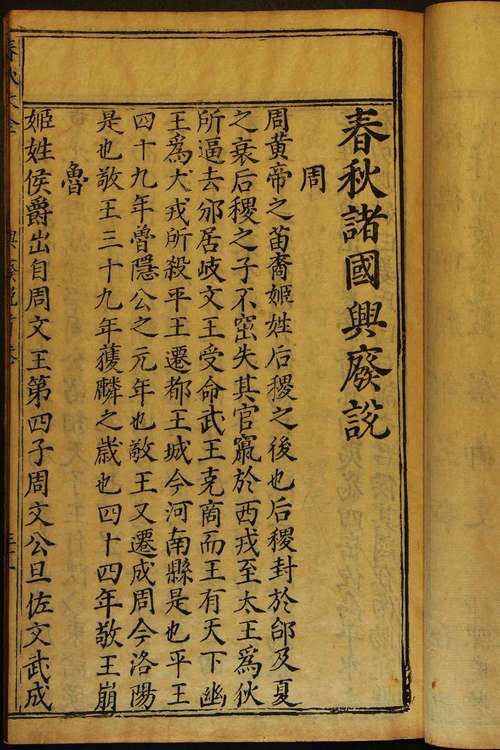 春秋諸國興廢說
周
周黃帝之苗裔姬姓后稷之後也后稷封於邰及夏
之衰后稷之子不窋失其官竄於西戎至太王爲狄
所逼去邠居岐文王受命武王克商而王有天下幽
王爲犬戎所殺平王遷都王城今河南縣是也平王
四十九年魯隱公之元年也敬王又遷成周今洛陽
是也敬王三十九年獲麟之歲也四十四年敬王崩
魯
姬姓侯爵出自周文王第四子周文公旦佐文武成
春秋大全
興廢說